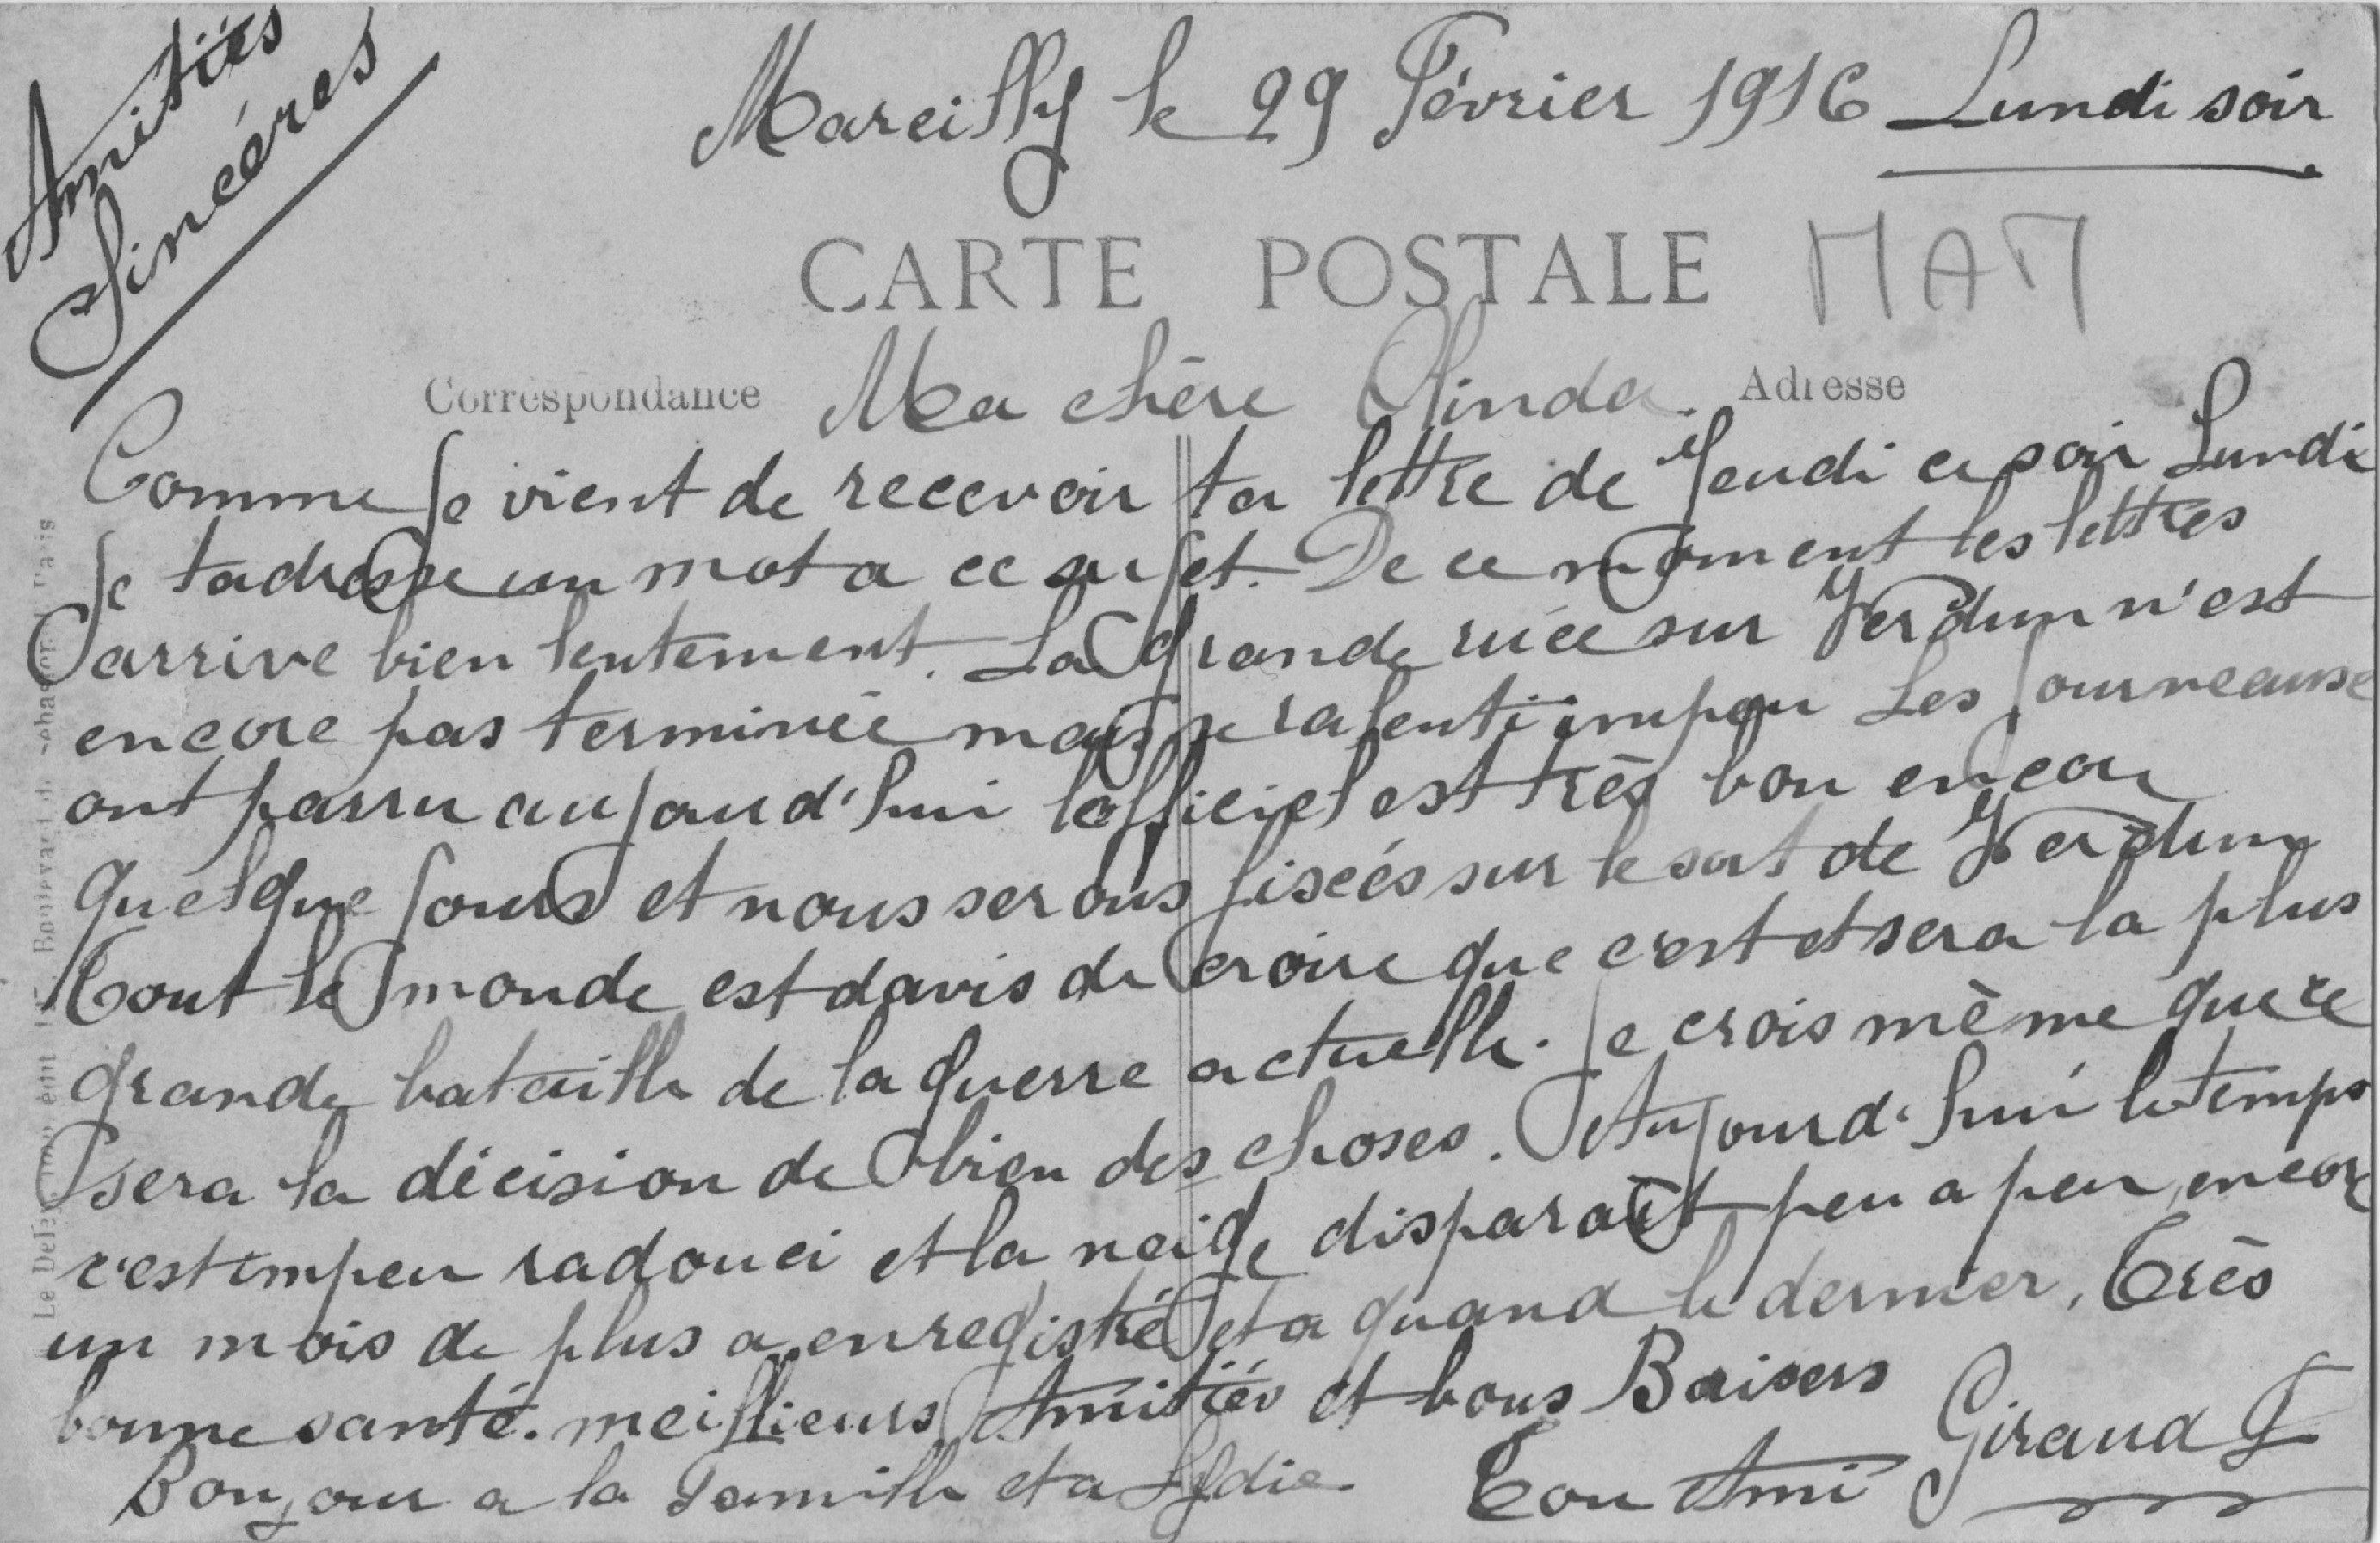 Amitiés
Sincéres
Mareilly le 29 Février 1916 Lundi soir
CARTE POSTALE MAM
Correspondance Ma chère Olinda. Adresse
Comme Je vient de recevoir ta lettre de Jeudi ce soir Lundi
Je tadresse un mot a ce sujet. De ce moment les lettres
arrive bien lentement. La Grande ruée sur Verdun n'est
encore pas terminée mais se ralenti unpeu Les Journeause
ont parru aujourd'hui lofficiel est très bon encore
quelque Jours et nous serons fiscéés sur le sort de Verdun
Tout le monde est davis de croire que c'est et sera la plus
grande bataille de la guerre actuelle. Je crois même que ce
sera la décision de bien des choses. Aujourd'hui le temps
c'est unpeu radouci et la neige disparait peu a peu, encore
un mois de plus a enregistré et a quand le dernier, Très
bonne santé. meillieurs Amitiés et bons Baisers
Bonjour a la Famille et a Lydie. Ton Ami Giraud F